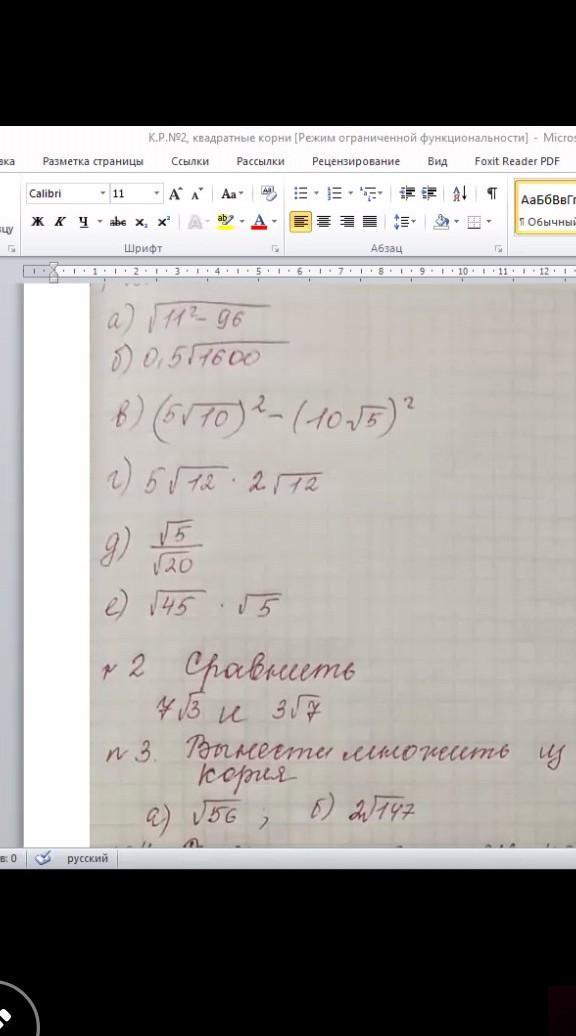 К.Р.№2, квадратные корни [Режим ограниченной функциональности] - Micros
вка Разметка страницы Ссылки Рассылки Рецензирование Вид Foxit Reader PDF
Calibri 11 А А Аа
АаБбВвГг
Ж К Ч abc x₂ x² А ab А
¶ Обычный
Шрифт Абзац
1 2 3 4 5 6 7 8 9 10 11 12
а) √(11² - 96)
б) 0,5√1600
в) (5√10)² - (10√5)²
г) 5√12 · 2√12
д) √5/√20
е) √45 · √5
№ 2 Сравнить
7√3 и 3√7
№ 3. Вынести множить из
корня
а) √56 ; б) 2√147
в: 0 русский